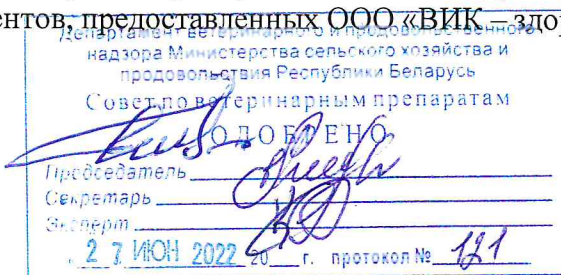 ентов, предоставленных ООО «ВИК – здор
Департамент ветеринарного и продовольственного
надзора Министерства сельского хозяйства и
продовольствия Республики Беларусь
Совет по ветеринарным препаратам
ОДОБРЕНО
Председатель
Секретарь
Эксперт
27 ИЮН 2022 20 г. протокол № 121